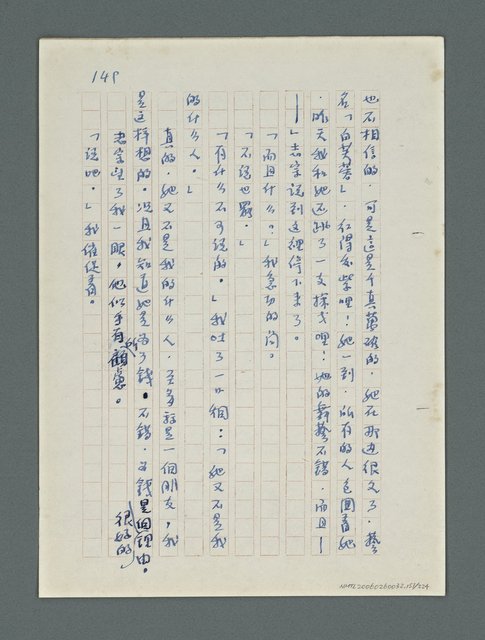 149
也不相信的，可是這是千真萬確的，她在那边很久了，藝
名「白芙蓉」，紅得發紫哩！她一到，所有的人包圍着她
，昨天我和她还跳了一支探戈哩！她的舞藝不錯，而且—
—」志宏說到这裡停下来了。
「而且什么？」我急切的问。
「不说也罷。」
「有什么不可说的。」我吐了一口烟：「她又不是我
的什么人。」
真的，她又不是我的什么人，至多祗是一個朋友，我
是这样想的。况且我知道她是為了錢。不錯，為錢是個很好的理由。
志宏望了我一眼，他似乎有所顧慮。
「说吧。」我催促着。
NMTL20060260032.151/224